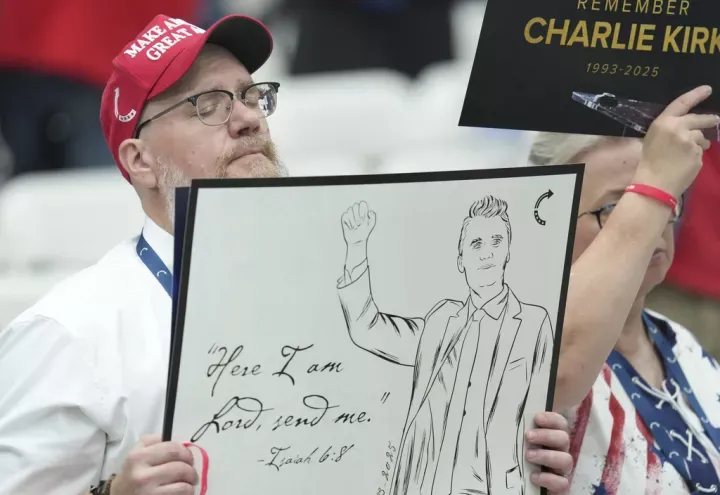 MAKE A
GREAT
REMEMBER
CHARLIE KIRK
1993-2025
"Here I am
Lord, send me."
-Isaiah 6:8
2025